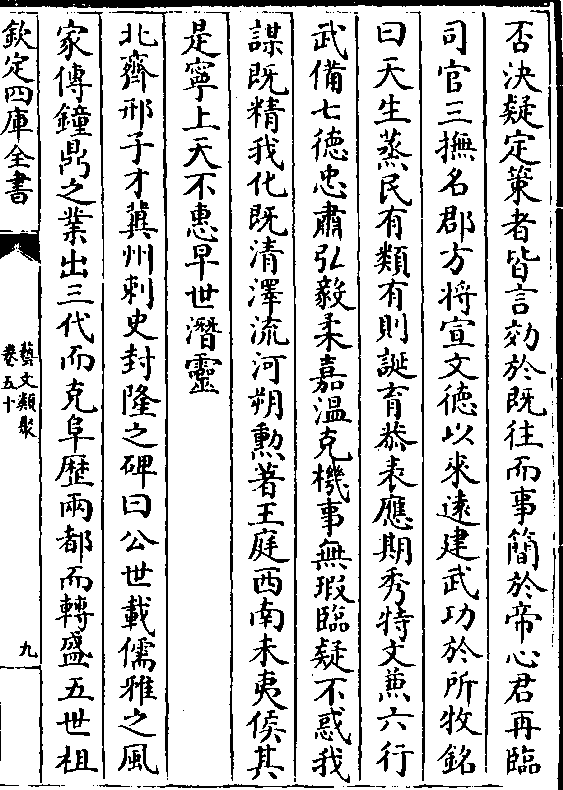 否決疑定策者皆言効於既往而事簡於帝心君再臨
司官三撫名郡方將宣文徳以來遠建武功於所牧銘
曰天生蒸民有類有則誕育恭表應期秀特文兼六行
武備七徳忠肅弘毅柔嘉温克機事無瑕臨疑不惑我
謀既精我化既清澤流河朔勲著王庭西南未夷侯其
是寧上天不惠早世潛靈
北齊邢子才冀州刺史封隆之碑曰公世載儒雅之風
家傳鐘鼎之業出三代而克阜歴兩都而轉盛五世祖
欽定四庫全書
藝文類聚
卷五十
九